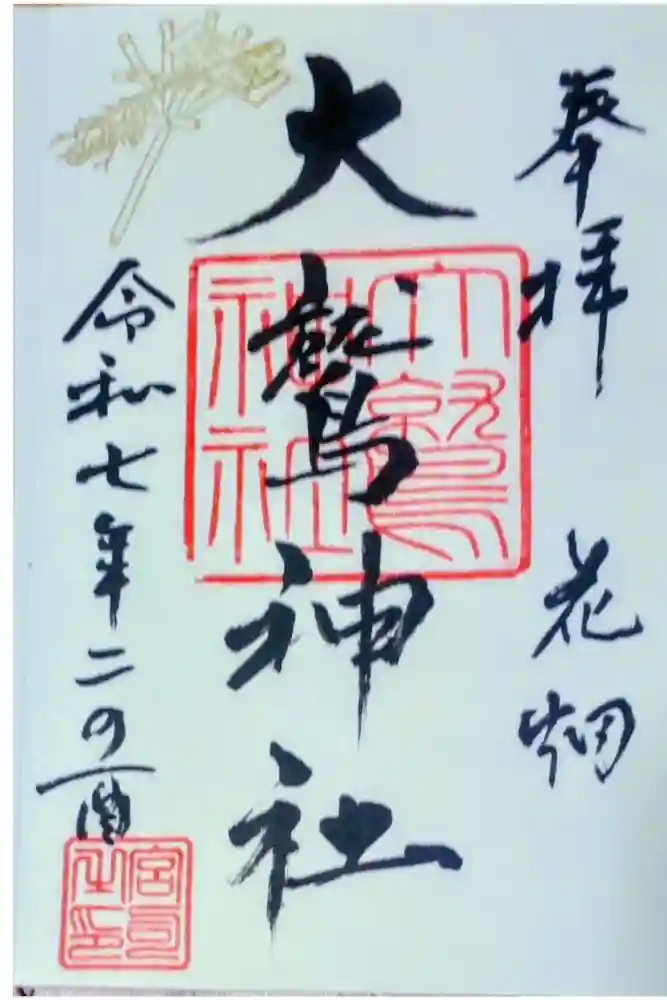 奉拝 花畑
大鷲神社
大鷲神社
令和七年二の酉
宮司之印